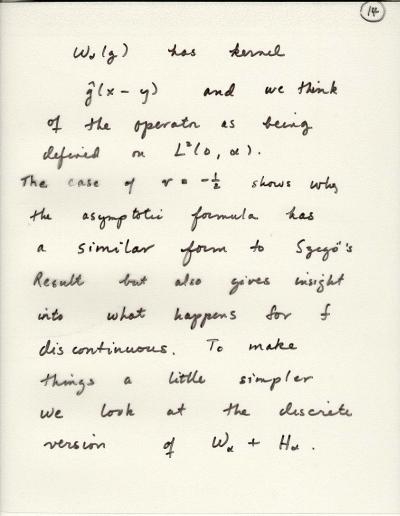 14
W_α(g) has kernel
ĝ(x - y) and we think
of the operator as being
defined on L²(0, α).
The case of ν = -½ shows why
the asymptotic formula has
a similar form to Szegö's
Result but also gives insight
into what happens for f
discontinuous. To make
things a little simpler
we look at the discrete
version of W_α + H_α.